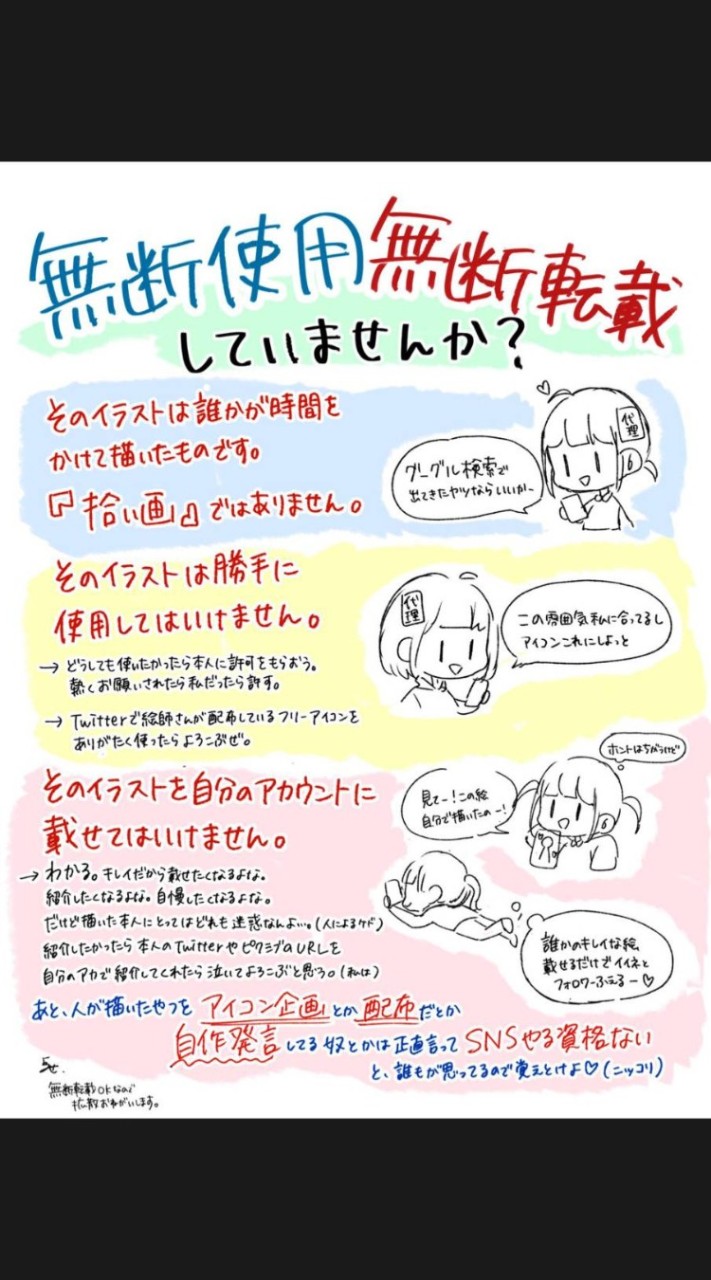 無断使用無断転載
していませんか?
そのイラストは誰かが時間を
かけて描いたものです。
『拾い画』ではありません。
代理
グーグル検索で
出てきたヤツならいいかー
そのイラストは勝手に
使用してはいけません。
→ どうしても使いたかったら本人に許可をもらおう。
熱くお願いされたら私だったら許す。
→ Twitterで絵師さんが配布しているフリーアイコンを
ありがたく使ったらよろこぶぜ。
代理
この雰囲気私に合ってるし
アイコンこれにしよっと
そのイラストを自分のアカウントに
載せてはいけません。
→ わかる。キレイだから載せたくなるよな。
紹介したくなるよな。自慢したくなるよな。
だけど描いた本人にとってはどれも迷惑なんよぃ。(人によるケド)
紹介したかったら本人のTwitterやピクシブのURLを
自分のアカで紹介してくれたら泣いてよろこぶと思う。(私は)
ホントはちがうけど
見てー!この絵
自分で描いたのー!
誰かのキレイな絵
載せるだけでイイネと
フォロワーふえるー♡
あと、人が描いたやつを アイコン企画とか配布だとか
自作発言してる奴とかは正直言ってSNSやる資格ない
と、誰もが思ってるので覚えとけよ♡(ニッコリ)
無断転載OKなので
拡散おねがいします。